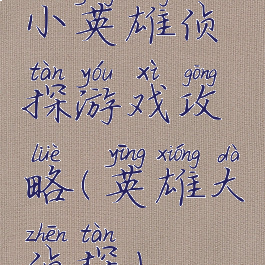 小英雄侦
tàn yóu xì gōng
探游戏攻
lüè yīng xióng dà
略(英雄大
zhēn tàn
侦探)